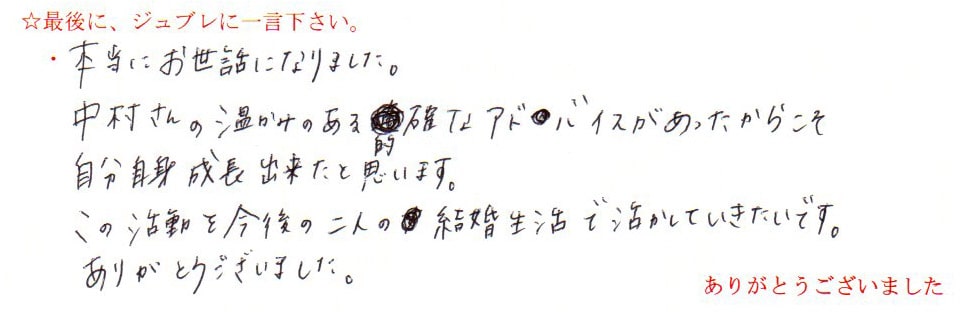 ☆最後に、ジュブレに一言下さい。
・本当にお世話になりました。
中村さんの温かみのある的確なアドバイスがあったからこそ
自分自身成長出来たと思います。
この活動を今後の二人の結婚生活で活かしていきたいです。
ありがとうございました。
ありがとうございました